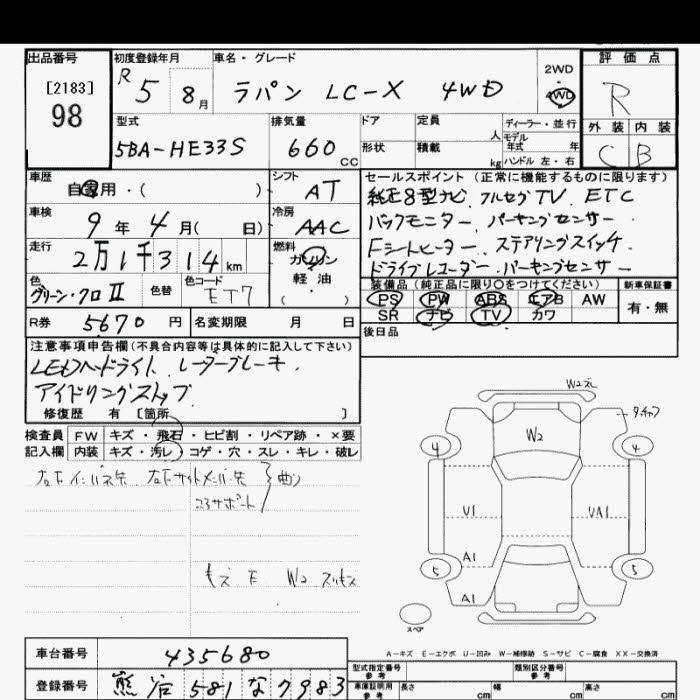 出品番号
[2183]
98
初度登録年月
R 5 8月
車名・グレード
ラパン LC-X 4WD
2WD
4WD
評価点
R
外装 内装
C B
型式
5BA-HE33S
排気量
660 CC
ドア
形状
定員 人
積載 kg
ディーラー・並行
モデル年式 年
ハンドル 左・右
車歴
自家用・( )
シフト
AT
車検
9年 4月( 日)
冷房
AAC
走行
2万1千314km
燃料
ガソリン
軽油
( )
色
グリーン・クロⅡ
色替
色コード
ET7
R券 5670円
名変期限 月 日
セールスポイント(正常に機能するものに限ります)
純正8型ナビ、フルセグTV、ETC
バックモニター、パーキングセンサー
Fシートヒーター、ステアリングスイッチ、
ドライブレコーダー、パーキングセンサー
装備品(純正品に限り○をつけてください)
PS PW ABS エアB AW
SR ナビ TV カワ
新車保証書
有・無
後日品
注意事項申告欄(不具合内容等は具体的に記入して下さい)
LEDヘッドライト、レーダーブレーキ、
アイドリングストップ
修復歴 有 [箇所 ]
検査員 FW キズ・飛石・ヒビ割・リペア跡・×要
記入欄 内装 キズ・汚レ・コゲ・穴・スレ・キレ・破レ
コアサポート
曲
キズ E W2 スリキズ
W2
W2
4
4
U1
UA1
A1
A1
5
5
スペア
A-キズ E-エクボ U-凹み W-補修跡 S-サビ C-腐食 XX-交換済
車台番号 435680
登録番号 熊谷 581 な 7983
型式指定番号 参考
類別区分番号 参考
車庫証明用 参考
長さ cm 幅 cm 高さ cm